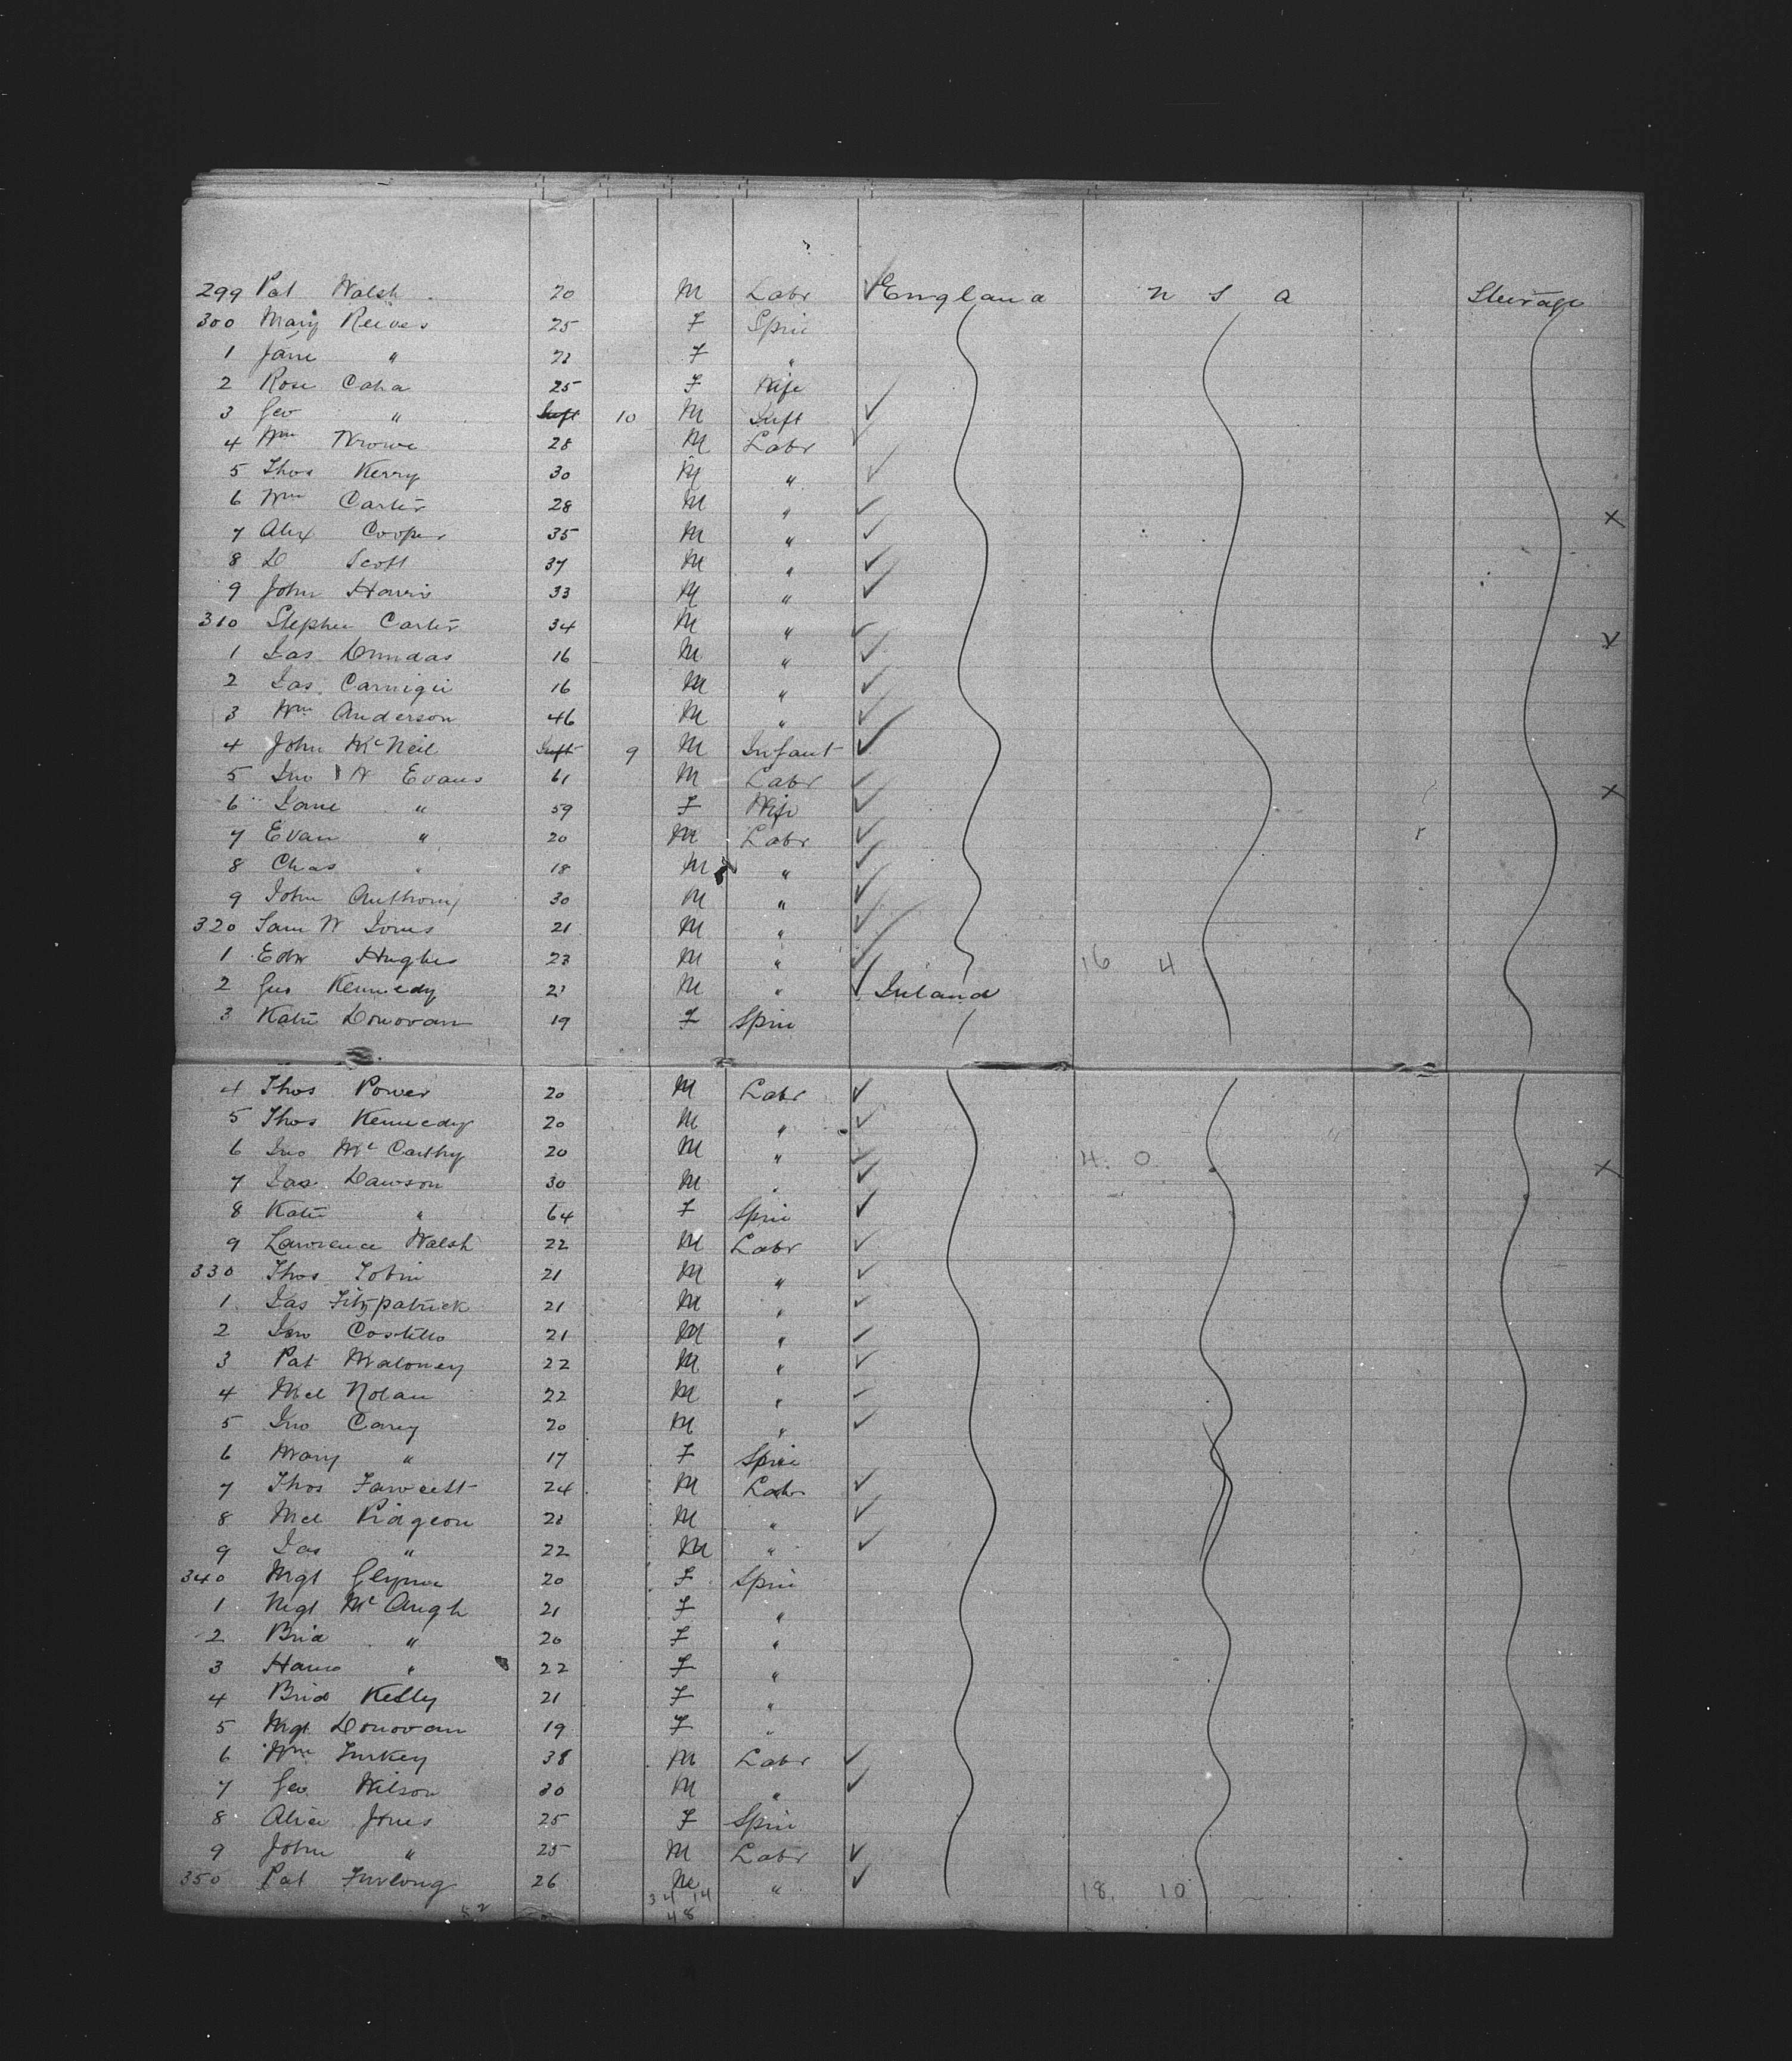 299 Pat Walsh 20 M Labr ✓ England U S A Steerage
300 Mary Reeves 25 F Spin
1 Jane " 21 F "
2 Rose Caha 25 F Wife
3 Geo " Inft 10 M Inft ✓
4 Wm 28 M Labr ✓
5 Thos Kerry 30 M " ✓
6 Wm Carter 28 M " ✓ X
7 Alex Cooper 35 M " ✓
8 D Scott 37 M " ✓
9 John Harris 33 M " ✓
310 Stephen Carter 34 M " ✓ X
1 Jas Dundas 16 M " ✓
2 Jas Carnigie 16 M " ✓
3 Wm Anderson 46 M " ✓
4 John McNeil Inft 9 M Infant ✓
5 Jno W Evans 61 M Labr ✓ X
6 Jane " 59 F Wife ✓
7 Evan " 20 M Labr ✓
8 Chas " 18 M " ✓
9 John Anthony 30 M " ✓
320 Sam W Jones 21 M " ✓
1 Edw Hughes 23 M " ✓ 16 4
2 Gus Kennedy 21 M " ✓ Ireland
3 Katie Donovan 19 F Spin
4 Thos Power 20 M Labr ✓
5 Thos Kennedy 20 M " ✓
6 Jno McCarthy 20 M " ✓ 4. 0 X
7 Jas Dawson 30 M " ✓
8 Katie " 64 F Spin ✓
9 Lawrence Walsh 22 M Labr ✓
330 Thos Tobin 21 M " ✓
1 Jas Fitzpatrick 21 M " ✓
2 Jno Costello 21 M " ✓
3 Pat Maloney 22 M " ✓
4 Mcl Nolan 22 M " ✓
5 Jno Carey 20 M " ✓
6 Mary " 17 F Spin
7 Thos Fawcett 24 M Labr ✓
8 Mcl Pidgeon 21 M " ✓
9 Jas " 22 M " ✓
340 Mgt Glynn 20 F Spin
1 Mgt McAugh 21 F "
2 Brid " 20 F "
3 " 22 F "
4 Brid Kelly 21 F "
5 Mgt Donovan 19 F "
6 Wm 38 M Labr ✓
7 Geo Wilson 30 M " ✓
8 Alice Jones 25 F Spin
9 John " 25 M Labr ✓
350 Pat Furlong 26 M " ✓ 18. 10
52 34 14
48